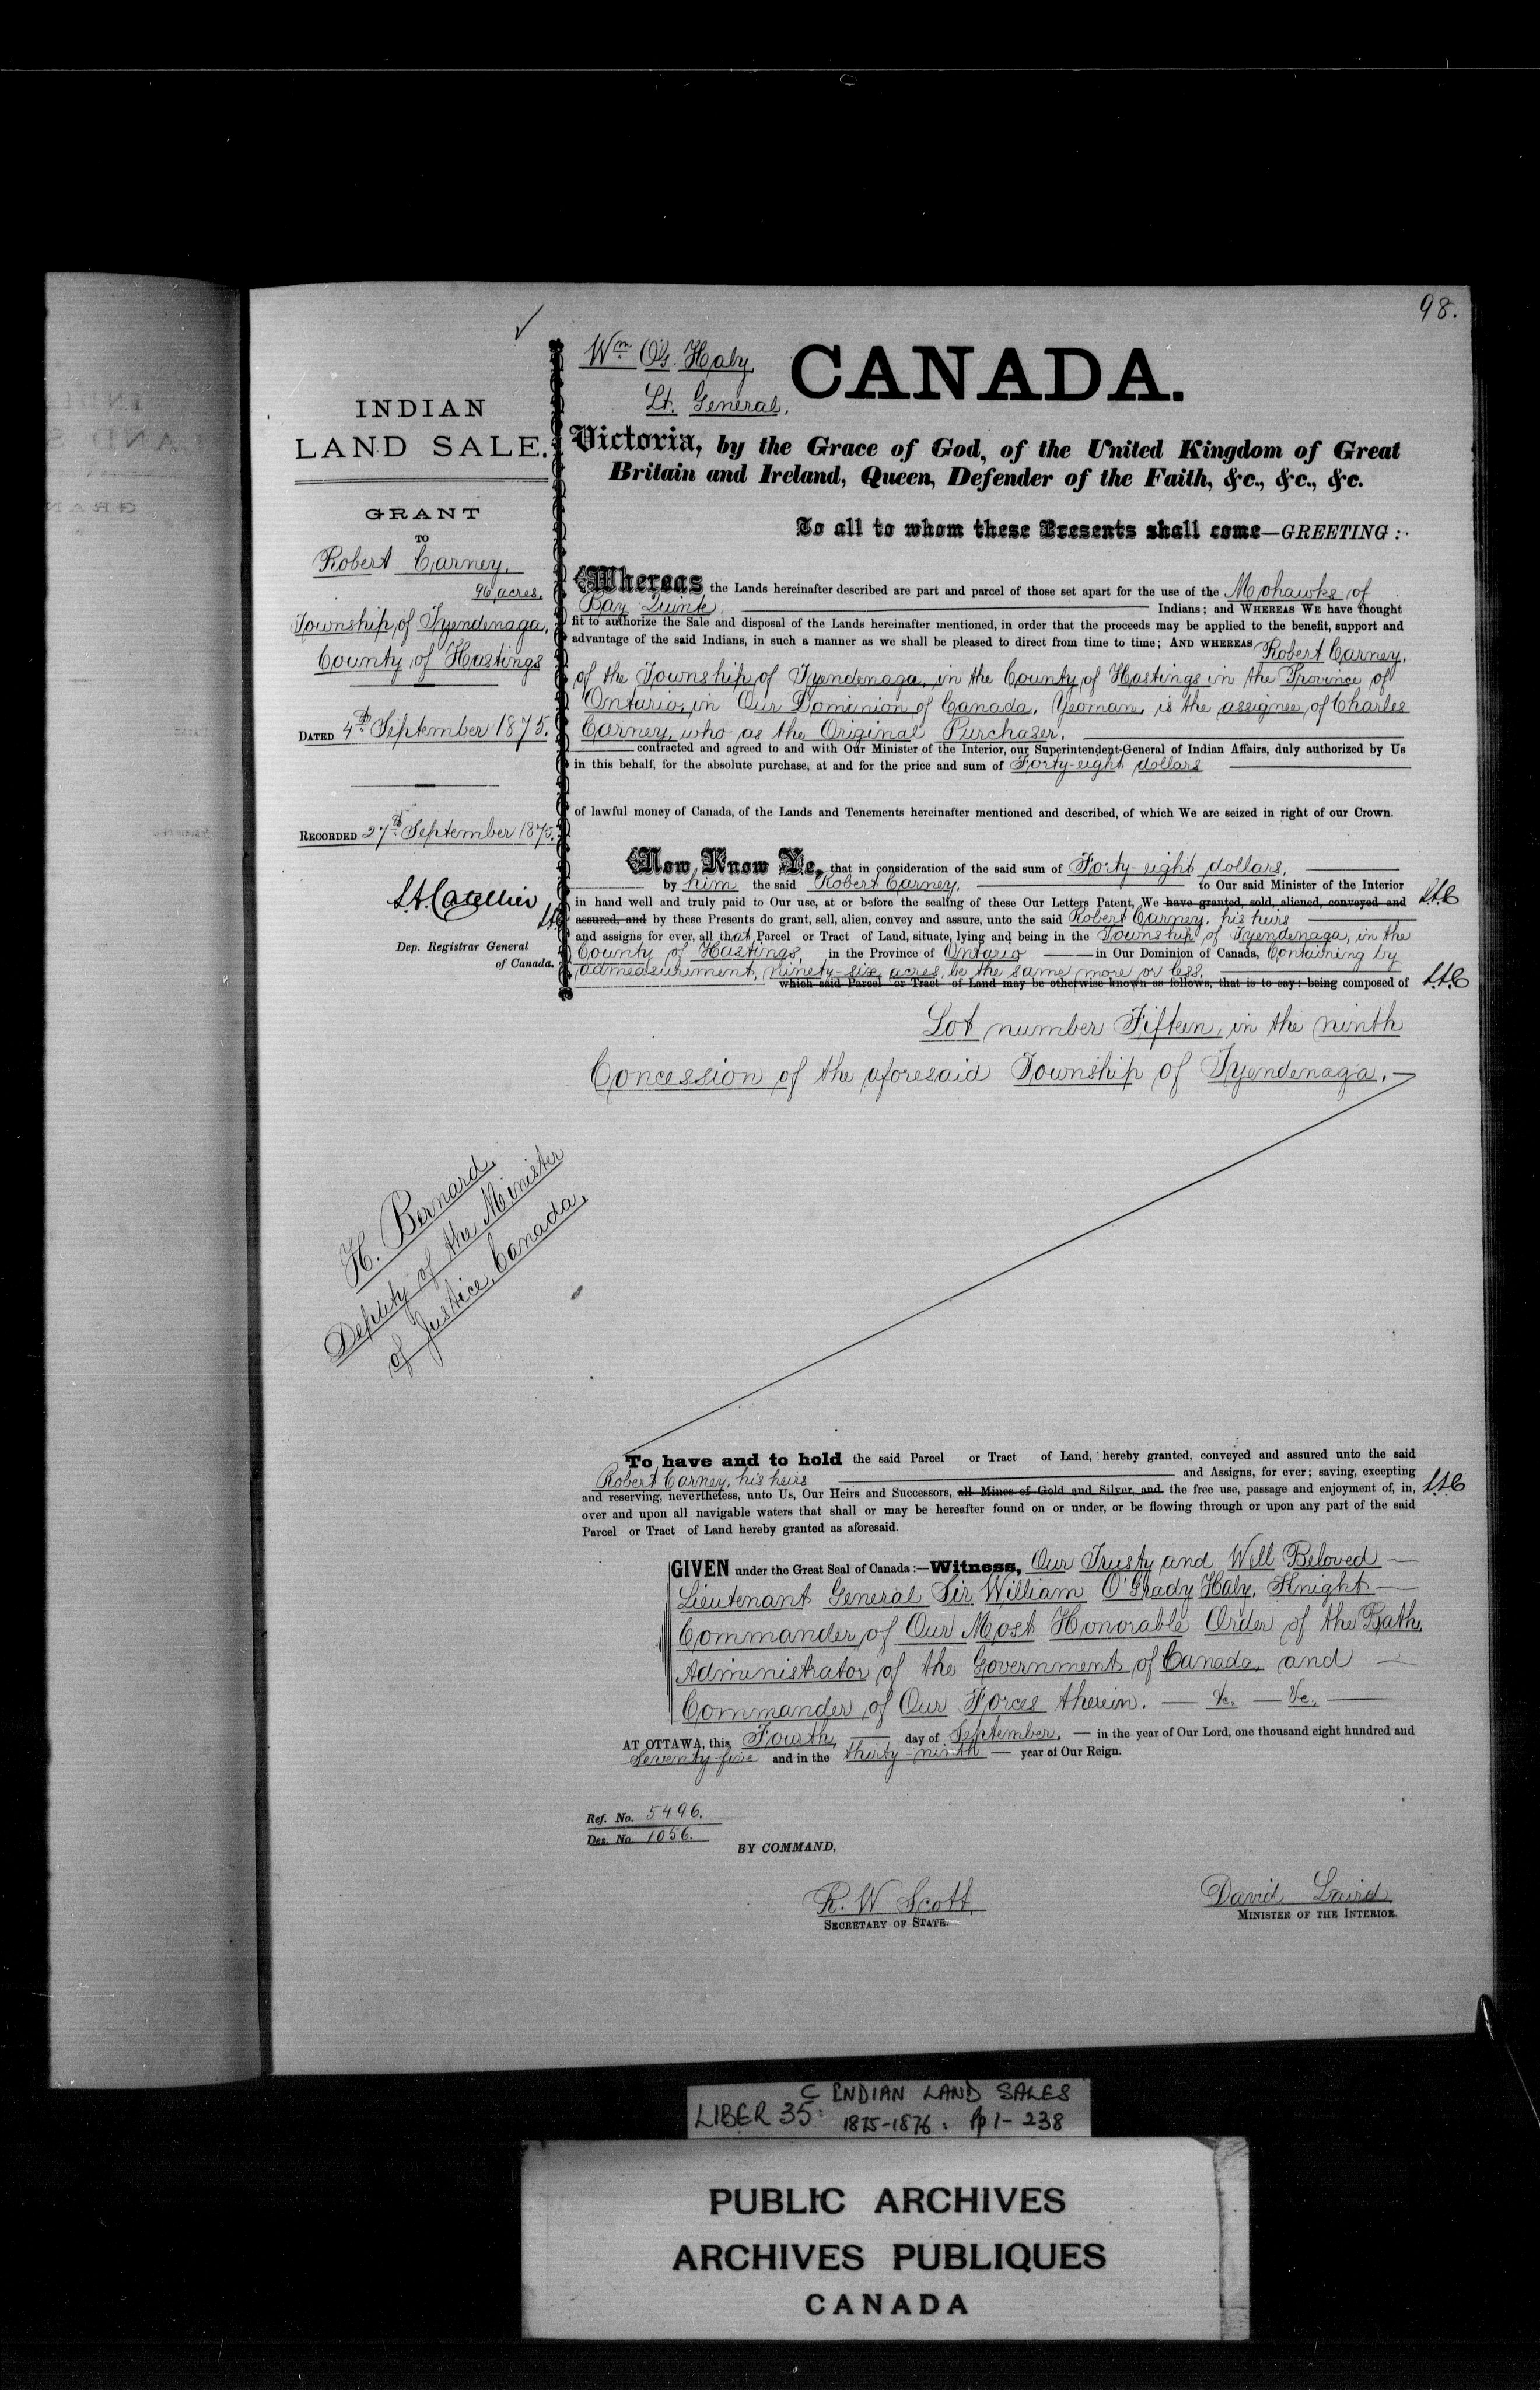 98.
Wm O'G. Haly,
Lt. General,
CANADA.
INDIAN
LAND SALE.
GRANT
TO
Robert Carney.
96 acres.
Township of Tyendenaga,
County of Hastings
DATED 4th September 1875.
RECORDED 27th September 1875.
L.A. Catellier
L.A.C
Dep. Registrar General
of Canada.
Victoria, by the Grace of God, of the United Kingdom of Great
Britain and Ireland, Queen, Defender of the Faith, &c., &c., &c.
To all to whom these Presents shall come—GREETING:
Whereas the Lands hereinafter described are part and parcel of those set apart for the use of the Mohawks of
Bay Quinte Indians; and WHEREAS WE have thought
fit to authorize the Sale and disposal of the Lands hereinafter mentioned, in order that the proceeds may be applied to the benefit, support and
advantage of the said Indians, in such a manner as we shall be pleased to direct from time to time; AND WHEREAS Robert Carney,
of the Township of Tyendenaga, in the County of Hastings in the Province of
Ontario, in Our Dominion of Canada, Yeoman, is the assignee of Charles
Carney, who as the Original Purchaser,
contracted and agreed to and with Our Minister of the Interior, our Superintendent-General of Indian Affairs, duly authorized by Us
in this behalf, for the absolute purchase, at and for the price and sum of Forty-eight dollars
of lawful money of Canada, of the Lands and Tenements hereinafter mentioned and described, of which We are seized in right of our Crown.
Now Know Ye, that in consideration of the said sum of Forty-eight dollars,
by him the said Robert Carney, to Our said Minister of the Interior
in hand well and truly paid to Our use, at or before the sealing of these Our Letters Patent, We have granted, sold, aliened, conveyed and L.A.C
assured, and by these Presents do grant, sell, alien, convey and assure, unto the said Robert Carney, his heirs
and assigns for ever, all that Parcel or Tract of Land, situate, lying and being in the Township of Tyendenaga, in the
County of Hastings, in the Province of Ontario in Our Dominion of Canada, Containing by
admeasurement, ninety-six acres, be the same more or less,
which said Parcel or Tract of Land may be otherwise known as follows, that is to say: being composed of L.A.C
Lot number Fifteen, in the ninth
Concession of the aforesaid Township of Tyendenaga.
H. Bernard,
Deputy of the Minister
of Justice, Canada,
To have and to hold the said Parcel or Tract of Land, hereby granted, conveyed and assured unto the said
Robert Carney, his heirs and Assigns, for ever; saving, excepting
and reserving, nevertheless, unto Us, Our Heirs and Successors, all Mines of Gold and Silver, and the free use, passage and enjoyment of, in, L.A.C
over and upon all navigable waters that shall or may be hereafter found on or under, or be flowing through or upon any part of the said
Parcel or Tract of Land hereby granted as aforesaid.
GIVEN under the Great Seal of Canada:—Witness, Our Trusty and Well Beloved
Lieutenant General Sir William O'Grady Haly, Knight
Commander of Our Most Honorable Order of the Bath,
Administrator of the Government of Canada, and
Commander of Our Forces therein. — &c. — &c.
AT OTTAWA, this Fourth day of September, in the year of Our Lord, one thousand eight hundred and
Seventy-five and in the thirty-ninth year of Our Reign.
Ref. No. 5496.
Des. No. 1056.
BY COMMAND,
R. W. Scott,
SECRETARY OF STATE.
David Laird,
MINISTER OF THE INTERIOR.
LIBER 35: C INDIAN LAND SALES
1875-1876: pp 1-238
PUBLIC ARCHIVES
ARCHIVES PUBLIQUES
CANADA